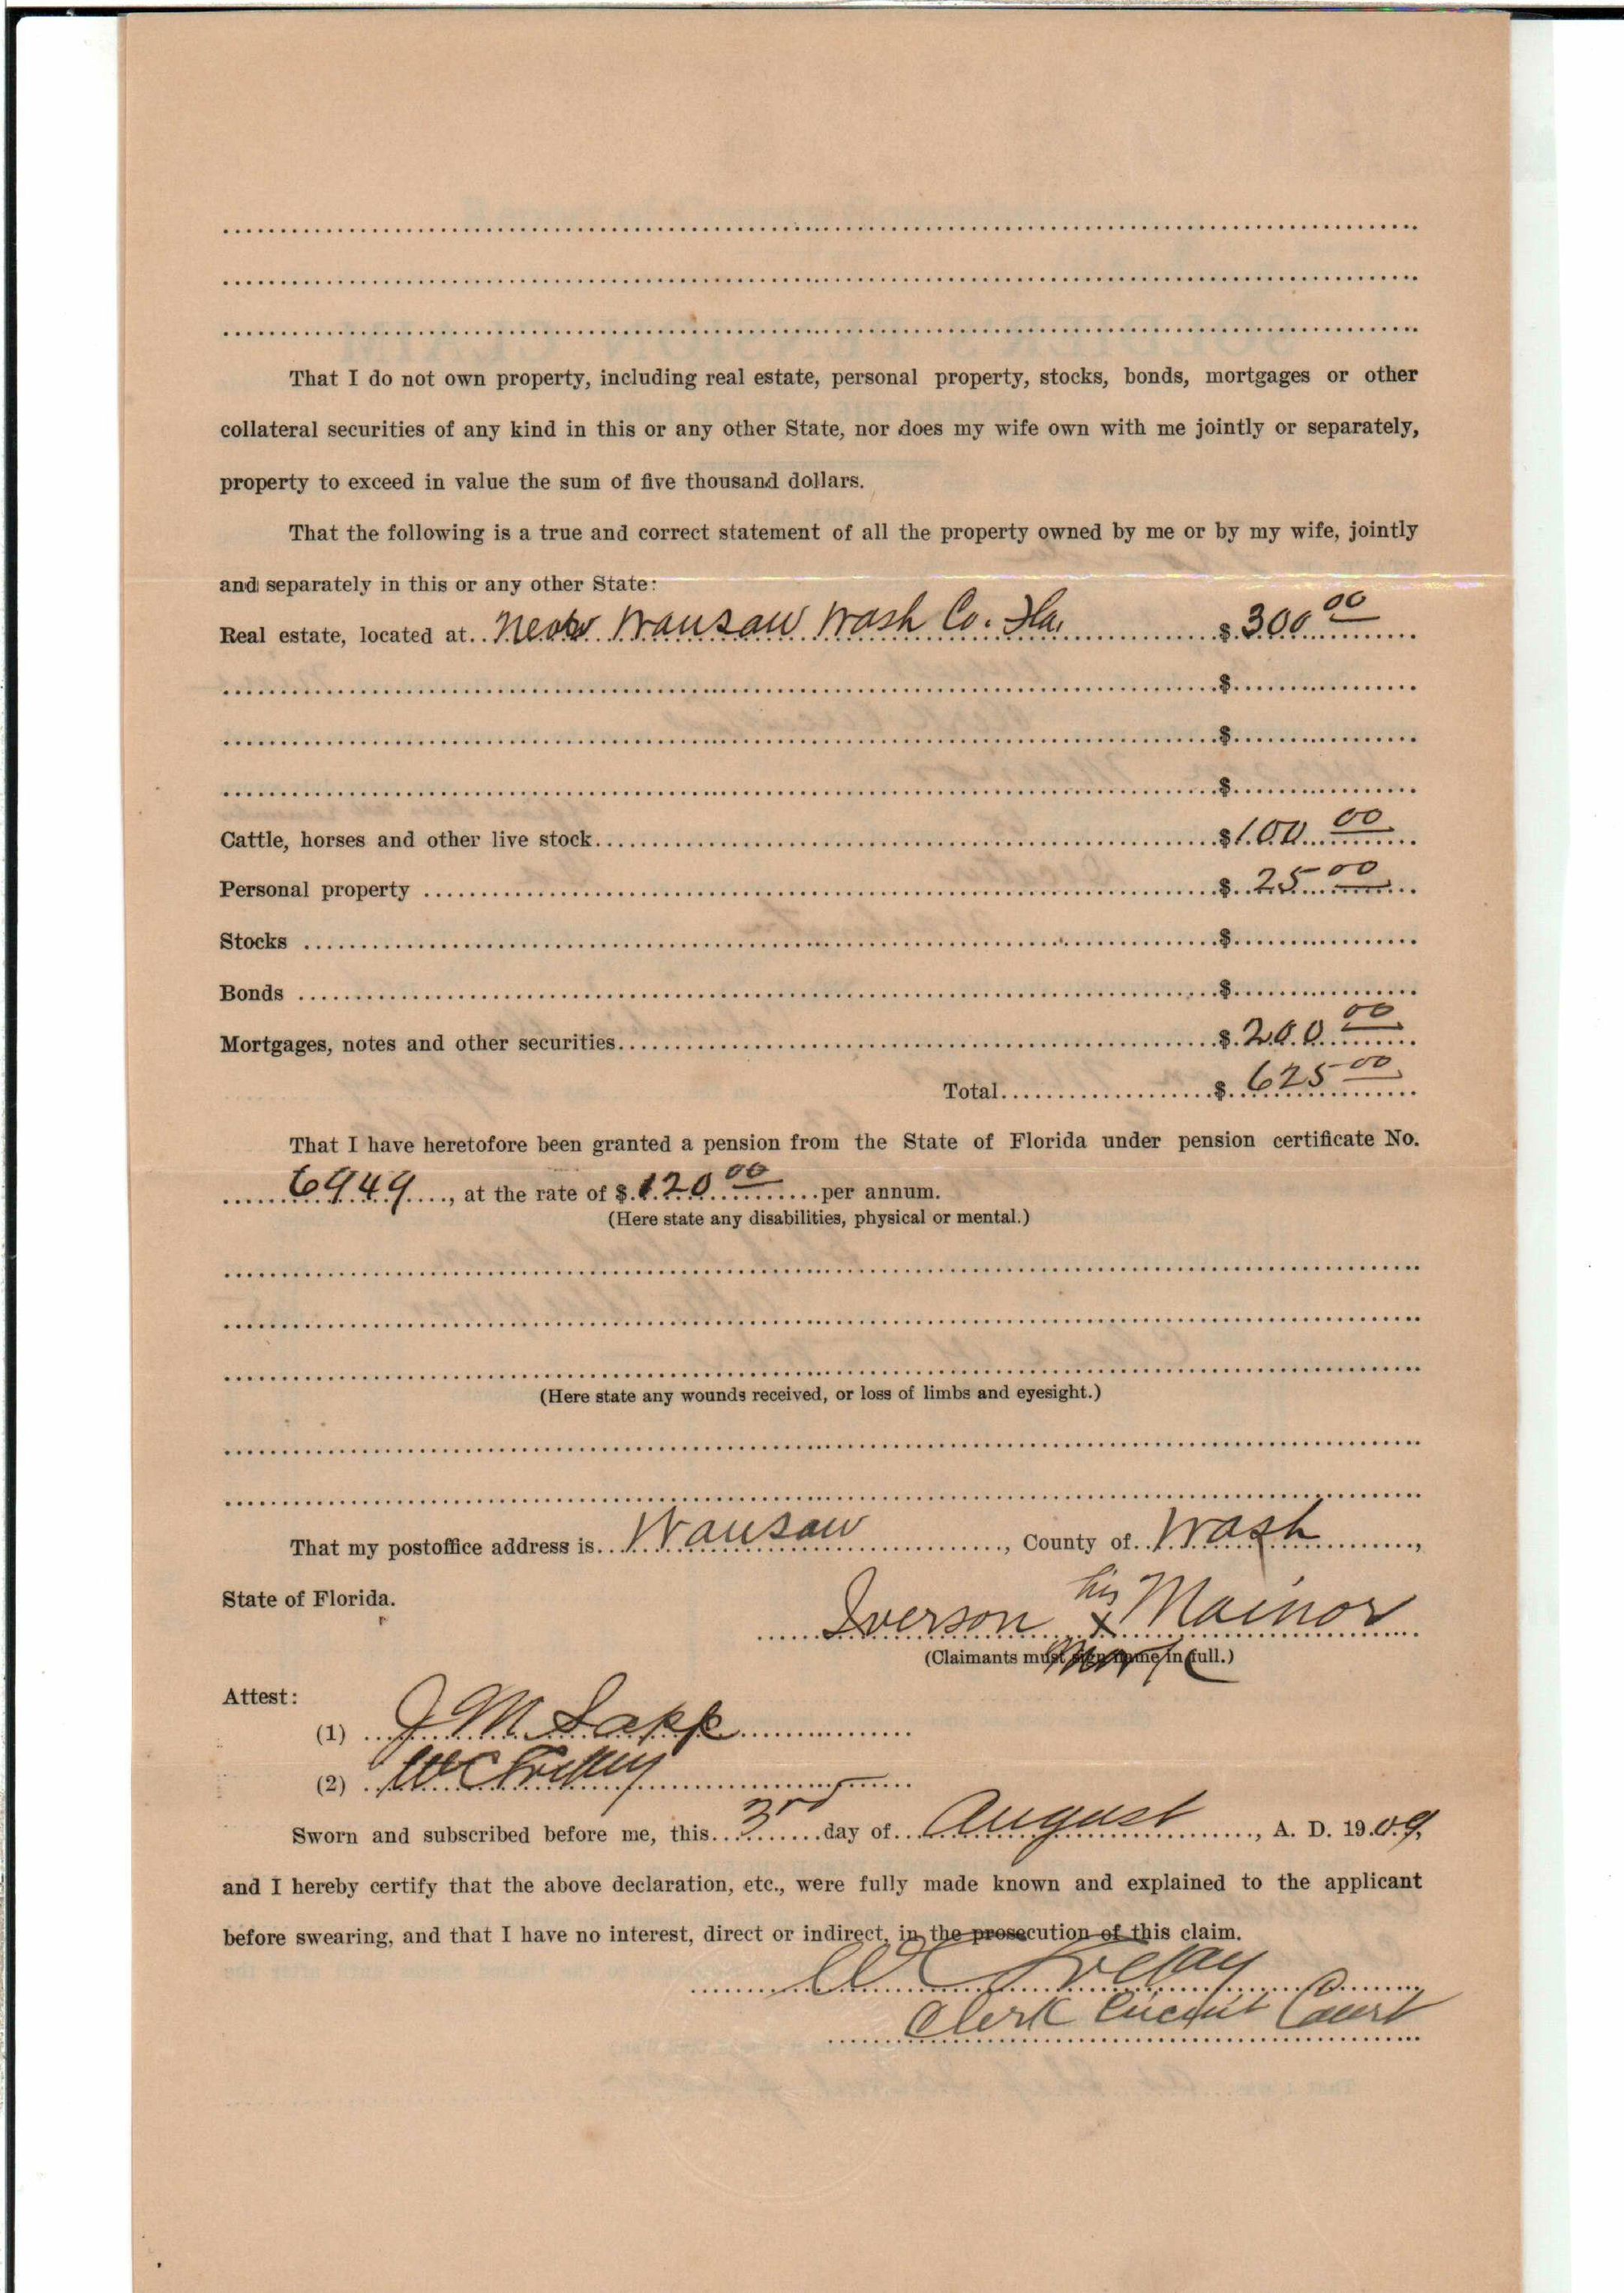 That I do not own property, including real estate, personal property, stocks, bonds, mortgages or other
collateral securities of any kind in this or any other State, nor does my wife own with me jointly or separately,
property to exceed in value the sum of five thousand dollars.
That the following is a true and correct statement of all the property owned by me or by my wife, jointly
and separately in this or any other State:
Real estate, located at Near Wausau Wash Co. Fla, $ 300 00
$
$
$
Cattle, horses and other live stock $ 100 00
Personal property $ 25 00
Stocks $
Bonds $
Mortgages, notes and other securities $ 200 00
Total $ 625 00
That I have heretofore been granted a pension from the State of Florida under pension certificate No.
6949, at the rate of $ 120 00 per annum.
(Here state any disabilities, physical or mental.)
(Here state any wounds received, or loss of limbs and eyesight.)
That my postoffice address is Wausau, County of Wash,
State of Florida.
Iverson his x mark Mainor
(Claimants must sign name in full.)
Attest:
(1) J M Sapp
(2) W C
Sworn and subscribed before me, this 3rd day of August, A. D. 1909,
and I hereby certify that the above declaration, etc., were fully made known and explained to the applicant
before swearing, and that I have no interest, direct or indirect, in the prosecution of this claim.
W C
Clerk Circuit Court